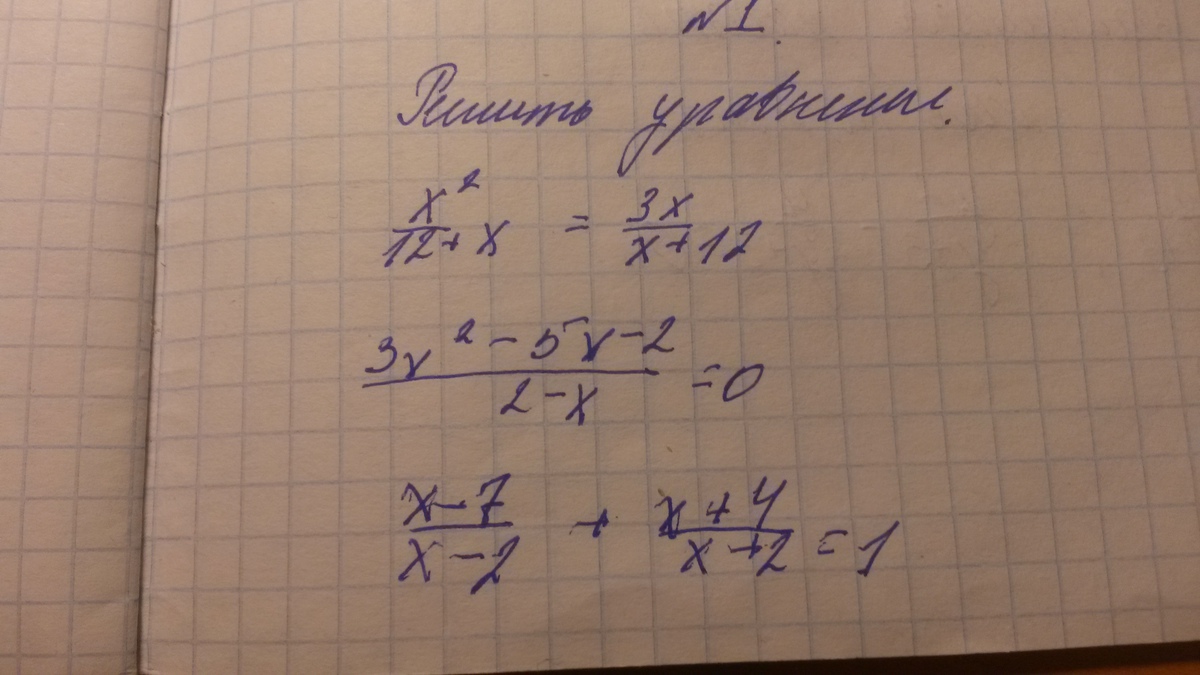 №1.
Решить уравнение.
x²/12+x = 3x/x+12
3x²-5x-2/2-x =0
x-7/x-2 + x+4/x+2 =1